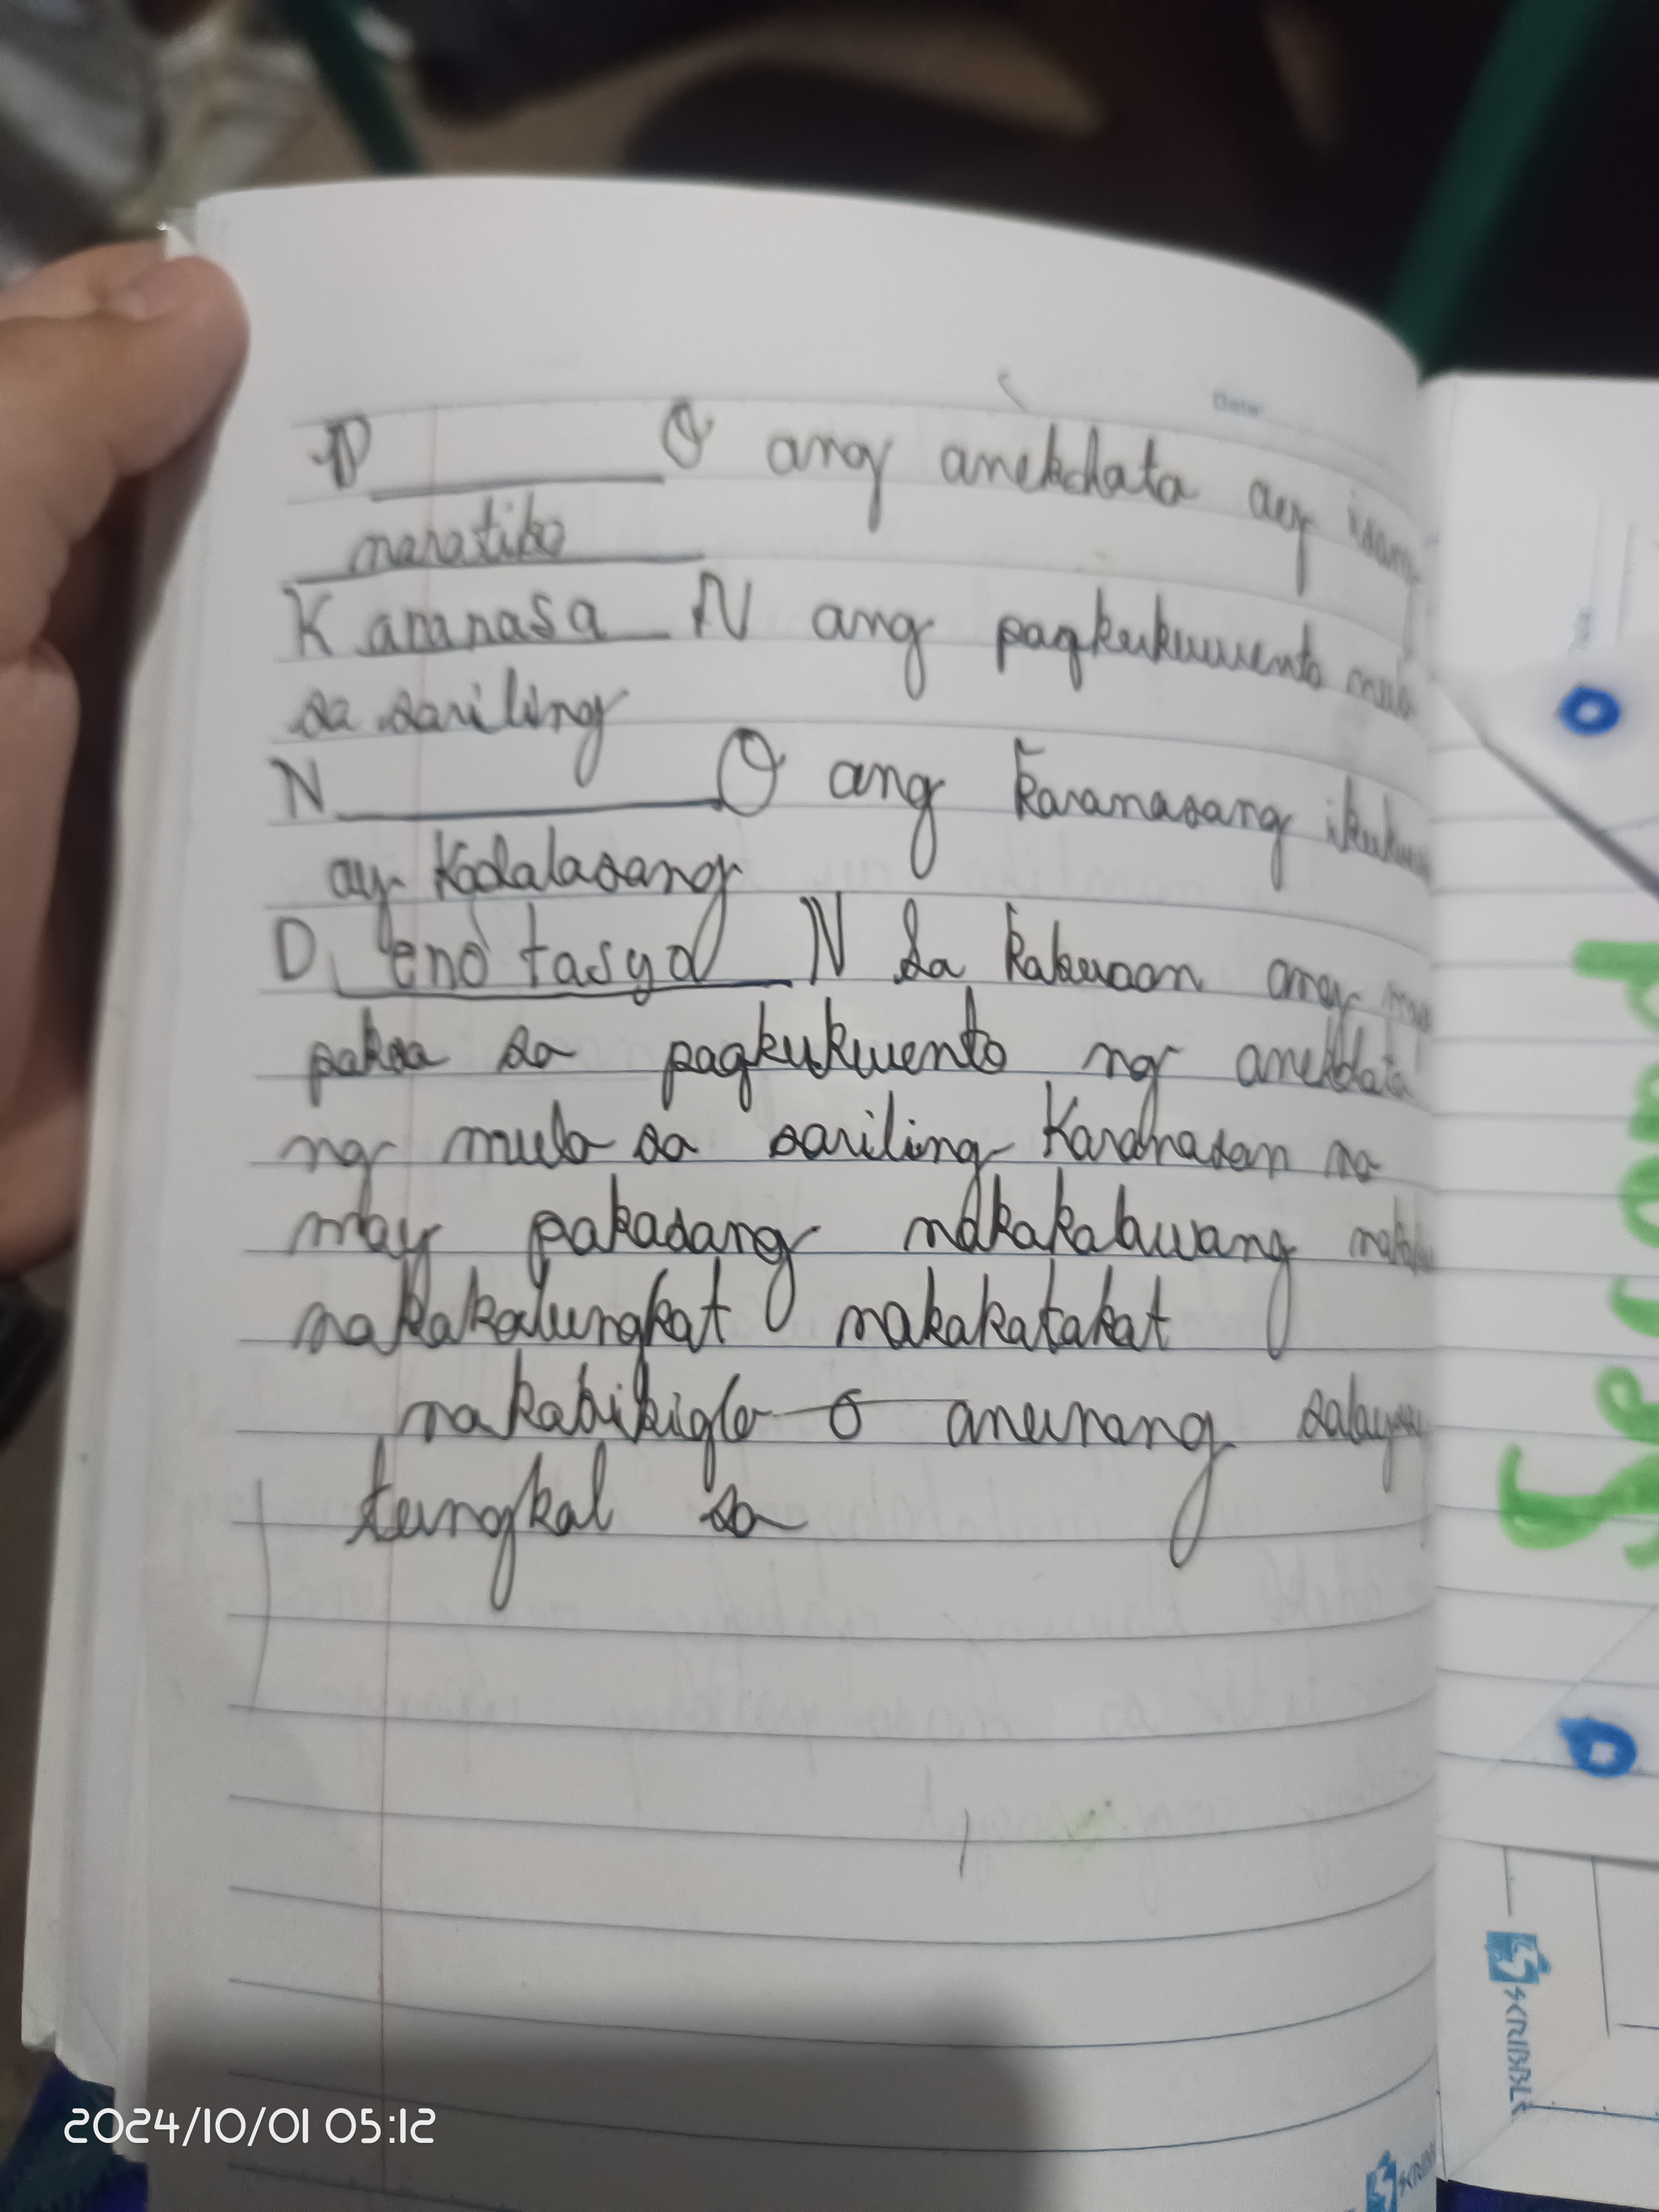 P________O ang anekdata ay isang
naratibo
Karanasa N ang pagkukuwento mula
sa sariling
N________O ang karanasang
ay kadalasang
D eno tasyo N sa kabuoan ang mga
paksa sa pagkukwento ng anekdata
ng mula sa sariling karanasan na
may pakasang makakalawang
nakakalungkat makakatakat
nakabibigla o anumang salaysay
tungkal sa
Date:
SCRIBBLE
2024/10/01 05:12